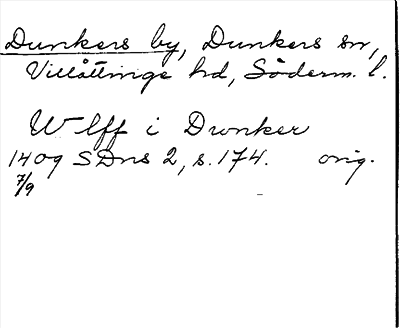 Dunkers by, Dunkers sn,
Villåttinge hd, Söderm. l.
Wlff i Dunker
1409 SDns 2, s. 174. orig.
7/9